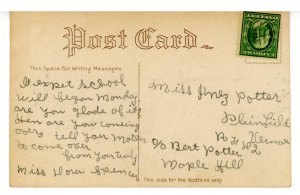 Post Card.
This Space for Writing Messages
I expet School
will began Monday
are you glade of it
Hen are you coming
over tell your Mother
to come over.
from your truly
Miss Dora Spencer
Miss Inez Potter
Plainfield
Vermont
c/o Bert Potter
Maple Hill
This side for the Address only